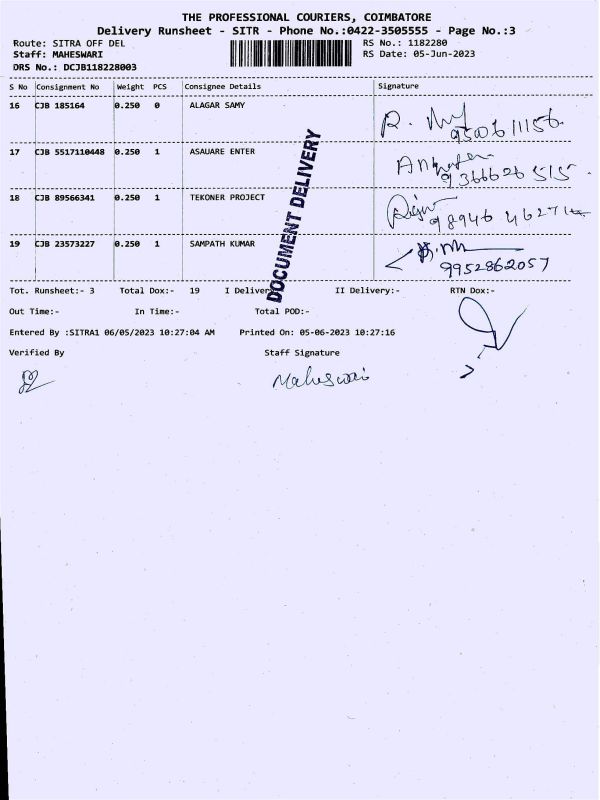 THE PROFESSIONAL COURIERS, COIMBATORE
Delivery Runsheet - SITR - Phone No.:0422-3505555 - Page No.:3
Route: SITRA OFF DEL RS No.: 1182280
Staff: MAHESWARI RS Date: 05-Jun-2023
DRS No.: DCJB118228003
S No Consignment No Weight PCS Consignee Details Signature
16 CJB 185164 0.250 0 ALAGAR SAMY
9500611156
17 CJB 5517110448 0.250 1 ASAUARE ENTER
9366626515
18 CJB 89566341 0.250 1 TEKONER PROJECT
19 CJB 23573227 0.250 1 SAMPATH KUMAR
9952862057
DOCUMENT DELIVERY
Tot. Runsheet:- 3 Total Dox:- 19 I Delivery II Delivery:- RTN Dox:-
Out Time:- In Time:- Total POD:-
Entered By :SITRA1 06/05/2023 10:27:04 AM Printed On: 05-06-2023 10:27:16
Verified By Staff Signature
Maheswari